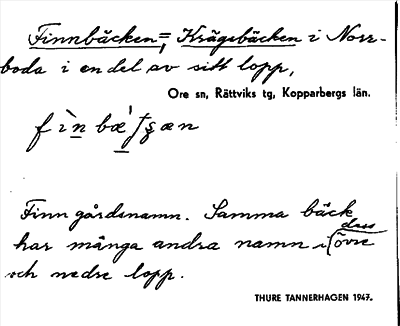 Finnbäcken =, Krägsbäcken i Norr-
boda i en del av sitt lopp,
Ore sn, Rättviks tg, Kopparbergs län.
Finn gårdsnamn. Samma bäck
dess
har många andra namn i (övre
och nedre lopp.
THURE TANNERHAGEN 1947.